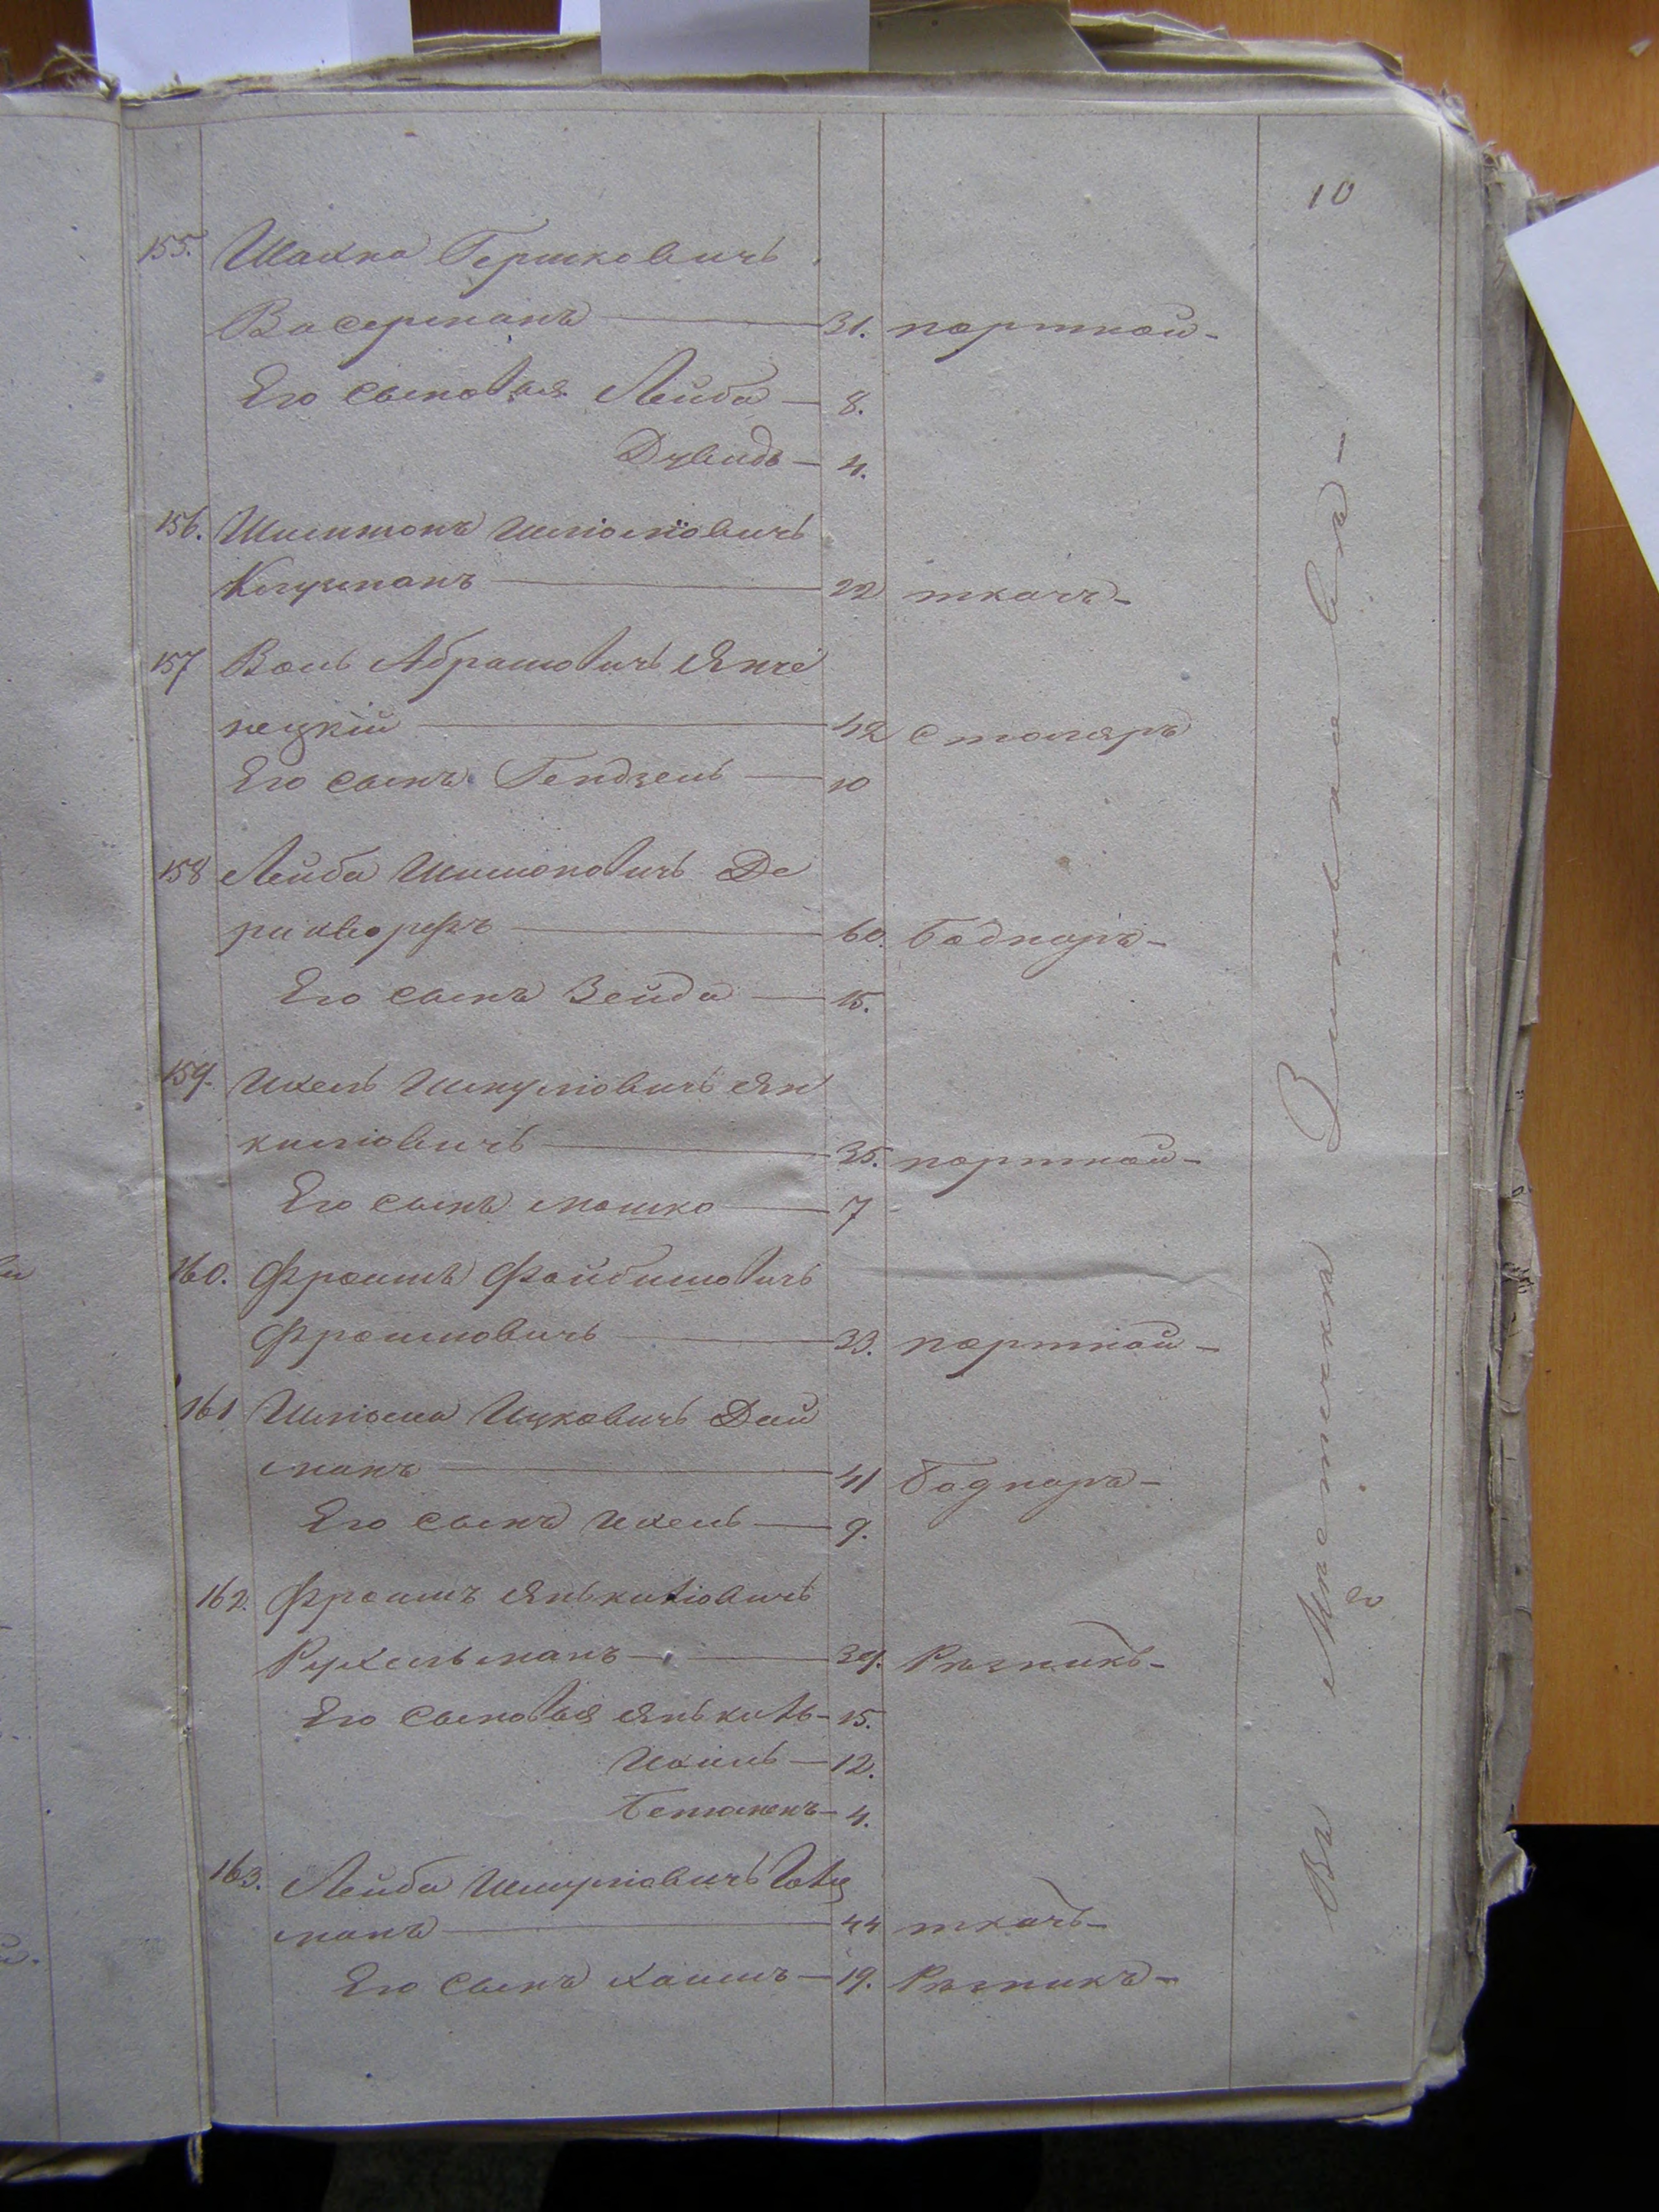 10
155. Шахна Гершковичъ
Васерманъ — 31. портной -
Его сыновья Лейба — 8.
Дувидъ — 4.
156. Шлиомовичъ
22 ткачъ -
157 Волъ Абрамовичъ Янче
нецкій — 42 столяръ
Его сынъ Гендзель — 10
158 Лейба Шимоновичъ Де
60. боднаръ -
Его сынъ Зейда — 15.
159. Ихель Шмулiовичъ Ян
килiовичъ — 35. портной -
Его сынъ Мошко — 7
160. Фроимъ Файбишовичъ
Фроимовичъ — 33. портной -
161 Шлiома Ицковичъ Дай
манъ — 41 боднаръ -
Его сынъ Ихель — 9.
162. Фроимъ Янькилiовичъ
Рухельманъ — 39. Рѣзникъ -
Его сыновья Янькиль - 15.
Ихиль — 12.
4.
163. Лейба Шмулiовичъ
манъ — 44 ткачъ -
Его сынъ Хаимъ — 19. Рѣзникъ -
Въ Мѣстечкѣ